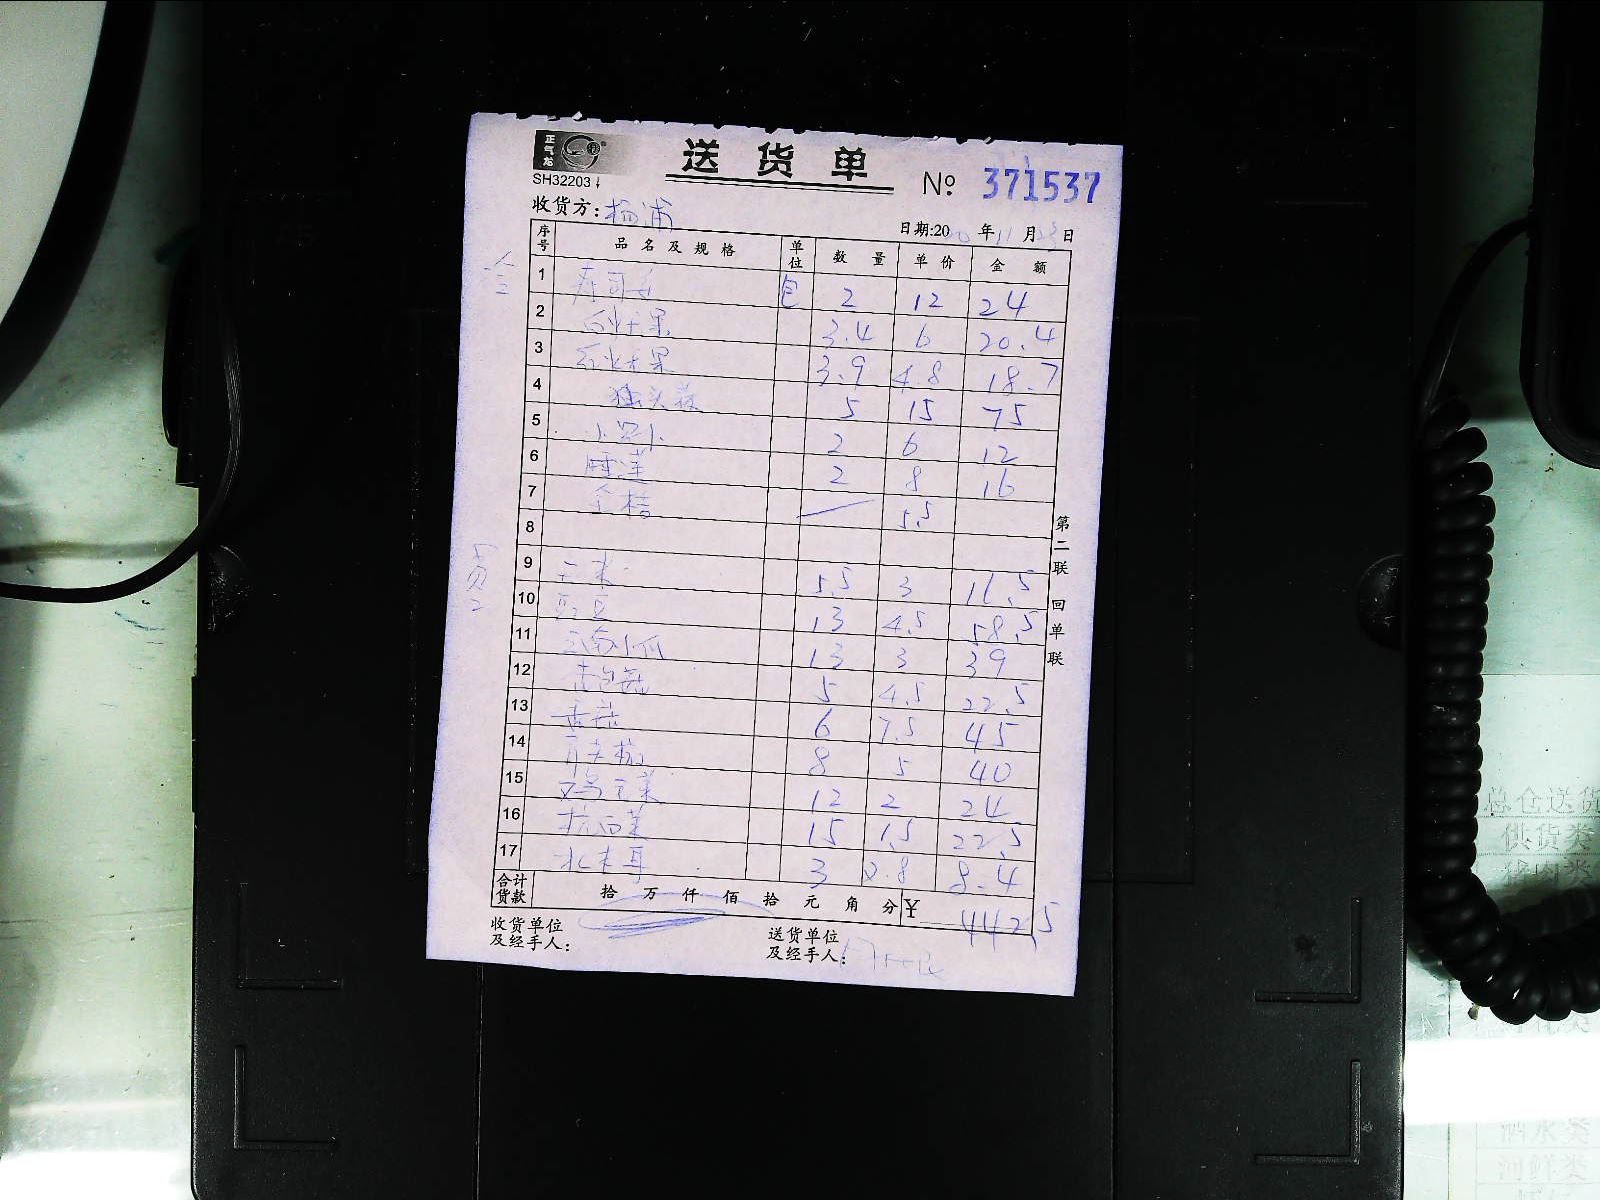 正气龙
送货单
SH32203
№ 371537
收货方: 杨浦
日期:20 20 年 11 月 23 日
序号 品名及规格 单位 数量 单价 金额
1 寿司 包 2 12 24
2 火龙果 3.4 6 20.4
3 红火龙果 3.9 4.8 18.7
4 独头蒜 5 15 75
5 2 6 12
6 睡莲 2 8 16
7 金桔 5.5
8
9 玉米 5.5 3 16.5
10 豆 13 4.5 58.5
11 云南小瓜 13 3 39
12 杏鲍菇 5 4.5 22.5
13 香菇 6 7.5 45
14 青尖椒 8 5 40
15 鸡毛菜 12 2 24
16 杭白菜 15 1.5 22.5
17 水木耳 3 2.8 8.4
合计货款 拾 万 仟 佰 拾 元 角 分 ¥ 442.5
收货单位及经手人:
送货单位及经手人:
第二联 回单联
总仓送货
供货类
酒水类
河鲜类